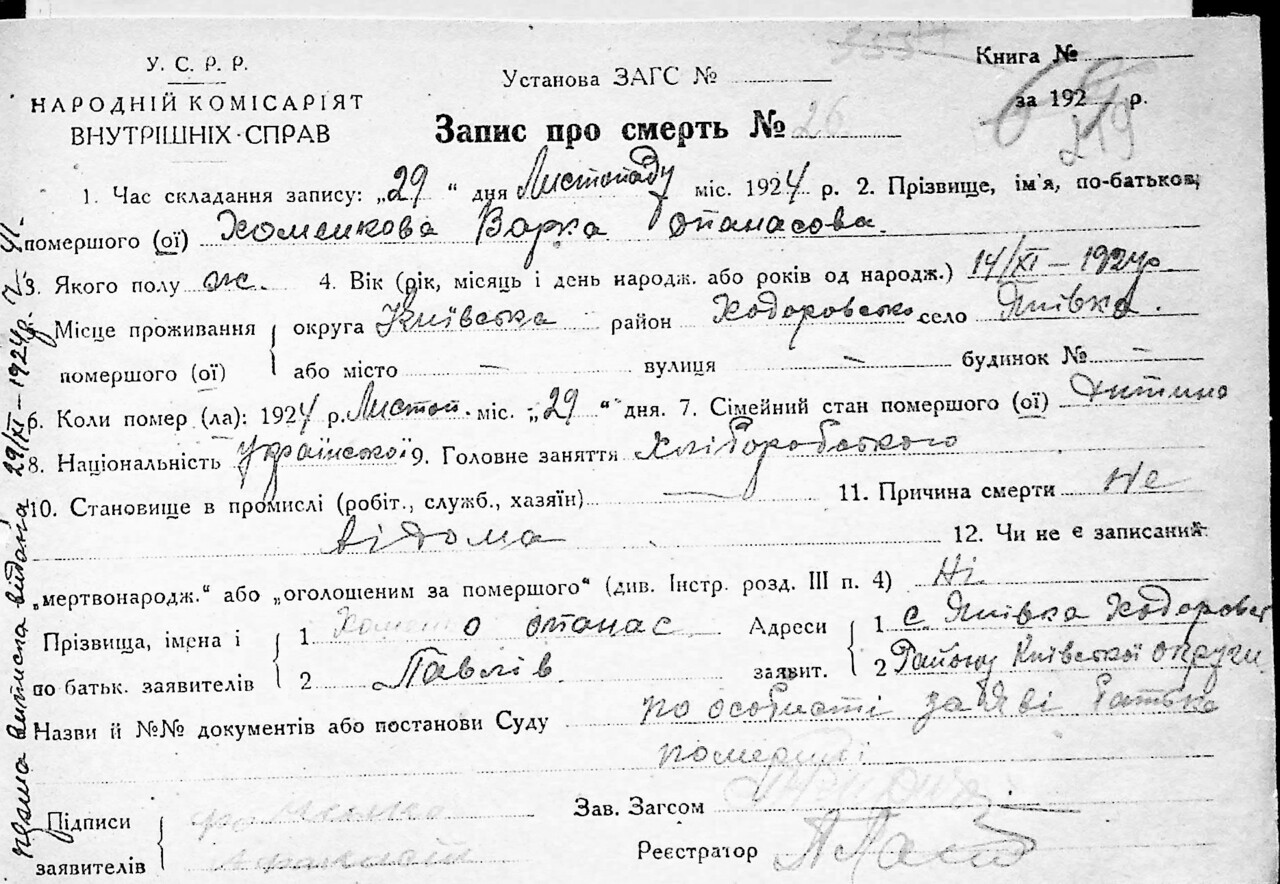 У. С. Р. Р.
НАРОДНІЙ КОМІСАРІЯТ
ВНУТРІШНІХ СПРАВ
Установа ЗАГС №
Книга №
за 192 р.
69
219
Запис про смерть № 26
1. Час складання запису: „29 “ дня Листопаду міс. 1924 р. 2. Прізвище, ім'я, по-батькові,
помершого (ої) Хоменкова Варка Опанасова.
3. Якого полу ж. 4. Вік (рік, місяць і день народж. або років од народж.) 14/XI – 1924р
Місце проживання округа Київська район Ходоровськ село Янівка.
помершого (ої) або місто — вулиця — будинок № —
6. Коли помер (ла): 1924 р. Листоп. міс. „29 “ дня. 7. Сімейний стан помершого (ої) Дитина
8. Національність Української 9. Головне заняття Хліборобського
10. Становище в промислі (робіт., служб., хазяїн) — 11. Причина смерти не
відома 12. Чи не є записаний
„мертвонародж.“ або „оголошеним за помершого“ (див. Інстр. розд. III п. 4) Ні.
Прізвища, імена і 1 Хоменко Опанас Адреси 1 с. Янівка Ходоровськ
по батьк. заявителів 2 Павлів заявит. 2 Району Київської округи
Назви й №№ документів або постанови Суду по особистій заяві батька
померші
Підписи
заявителів
Зав. Загсом
Реєстратор
виписка видана 29/XI – 1924р.